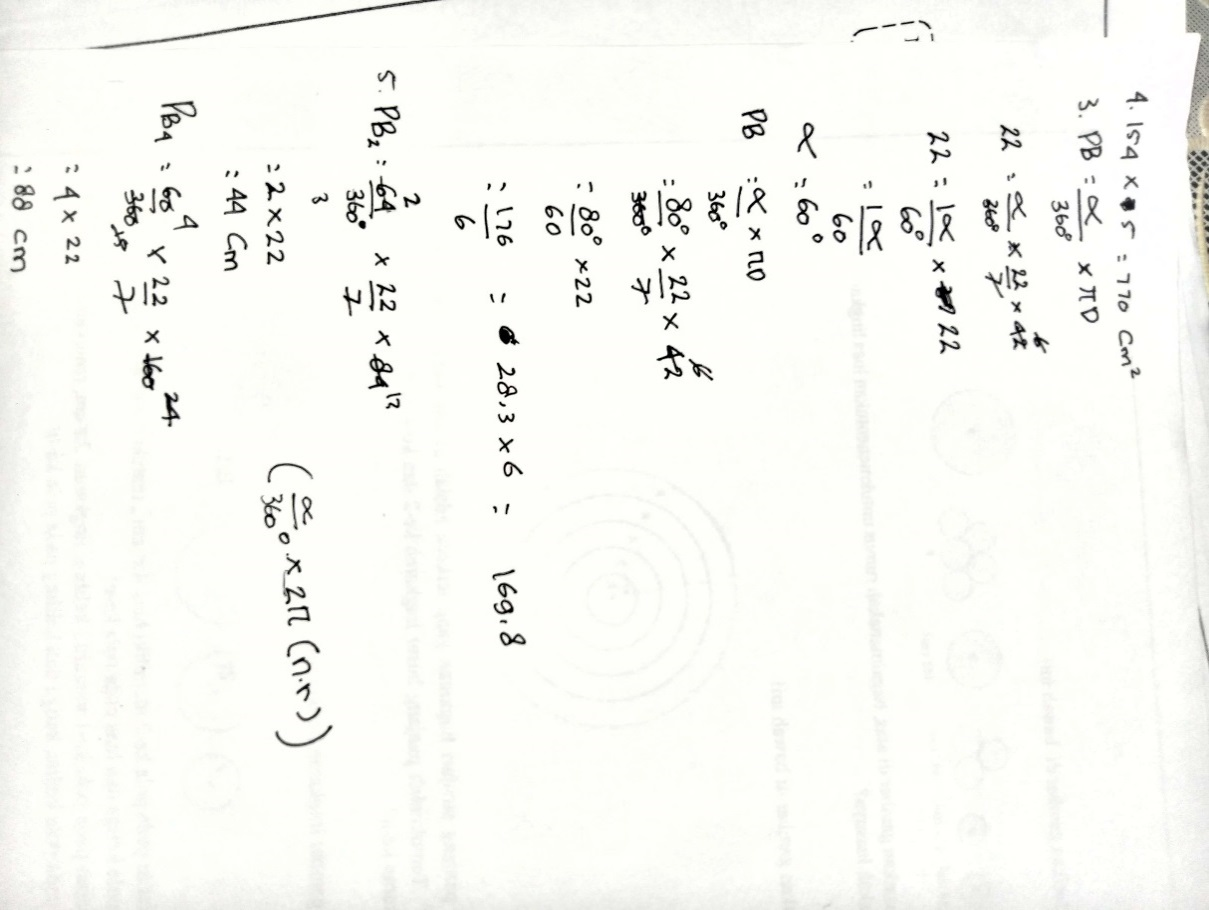 4. 154 × 5 = 770 cm²
3. PB = α/360° × πD
22 = α/360° × 22/7 × 42 6
22 = 1α/60° × 22
= 1α/60
α = 60°
PB = α/360° × πD
= 80°/360° × 22/7 × 42 6
= 80°/60 × 22
= 176/6 = 28,3 × 6 = 169.8
5. PB₂ = 64 2/360° × 22/7 × 84 12
3
= 2 × 22
= 44 Cm
(α/360° × 2π (n.r))
PB4 = 68 4/360 × 22/7 × 160 24
= 4 × 22
= 88 cm